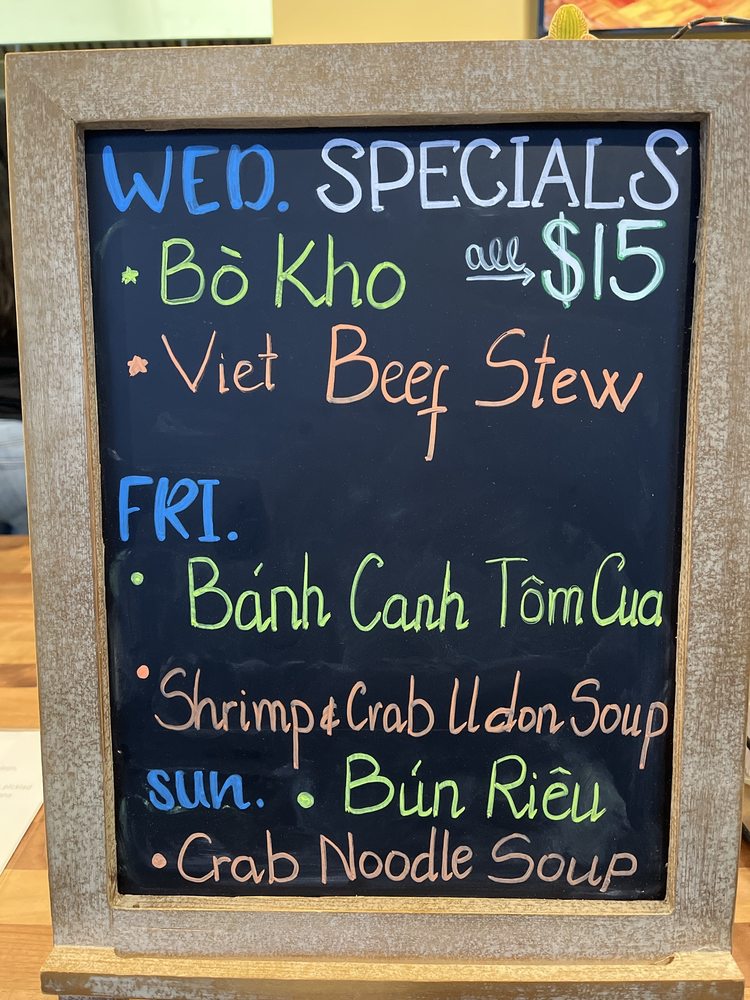 WED. SPECIALS
Bò Kho all → $15
Viet Beef Stew
FRI.
Bánh Canh Tôm Cua
Shrimp & Crab Udon Soup
Sun. • Bún Riêu
• Crab Noodle Soup